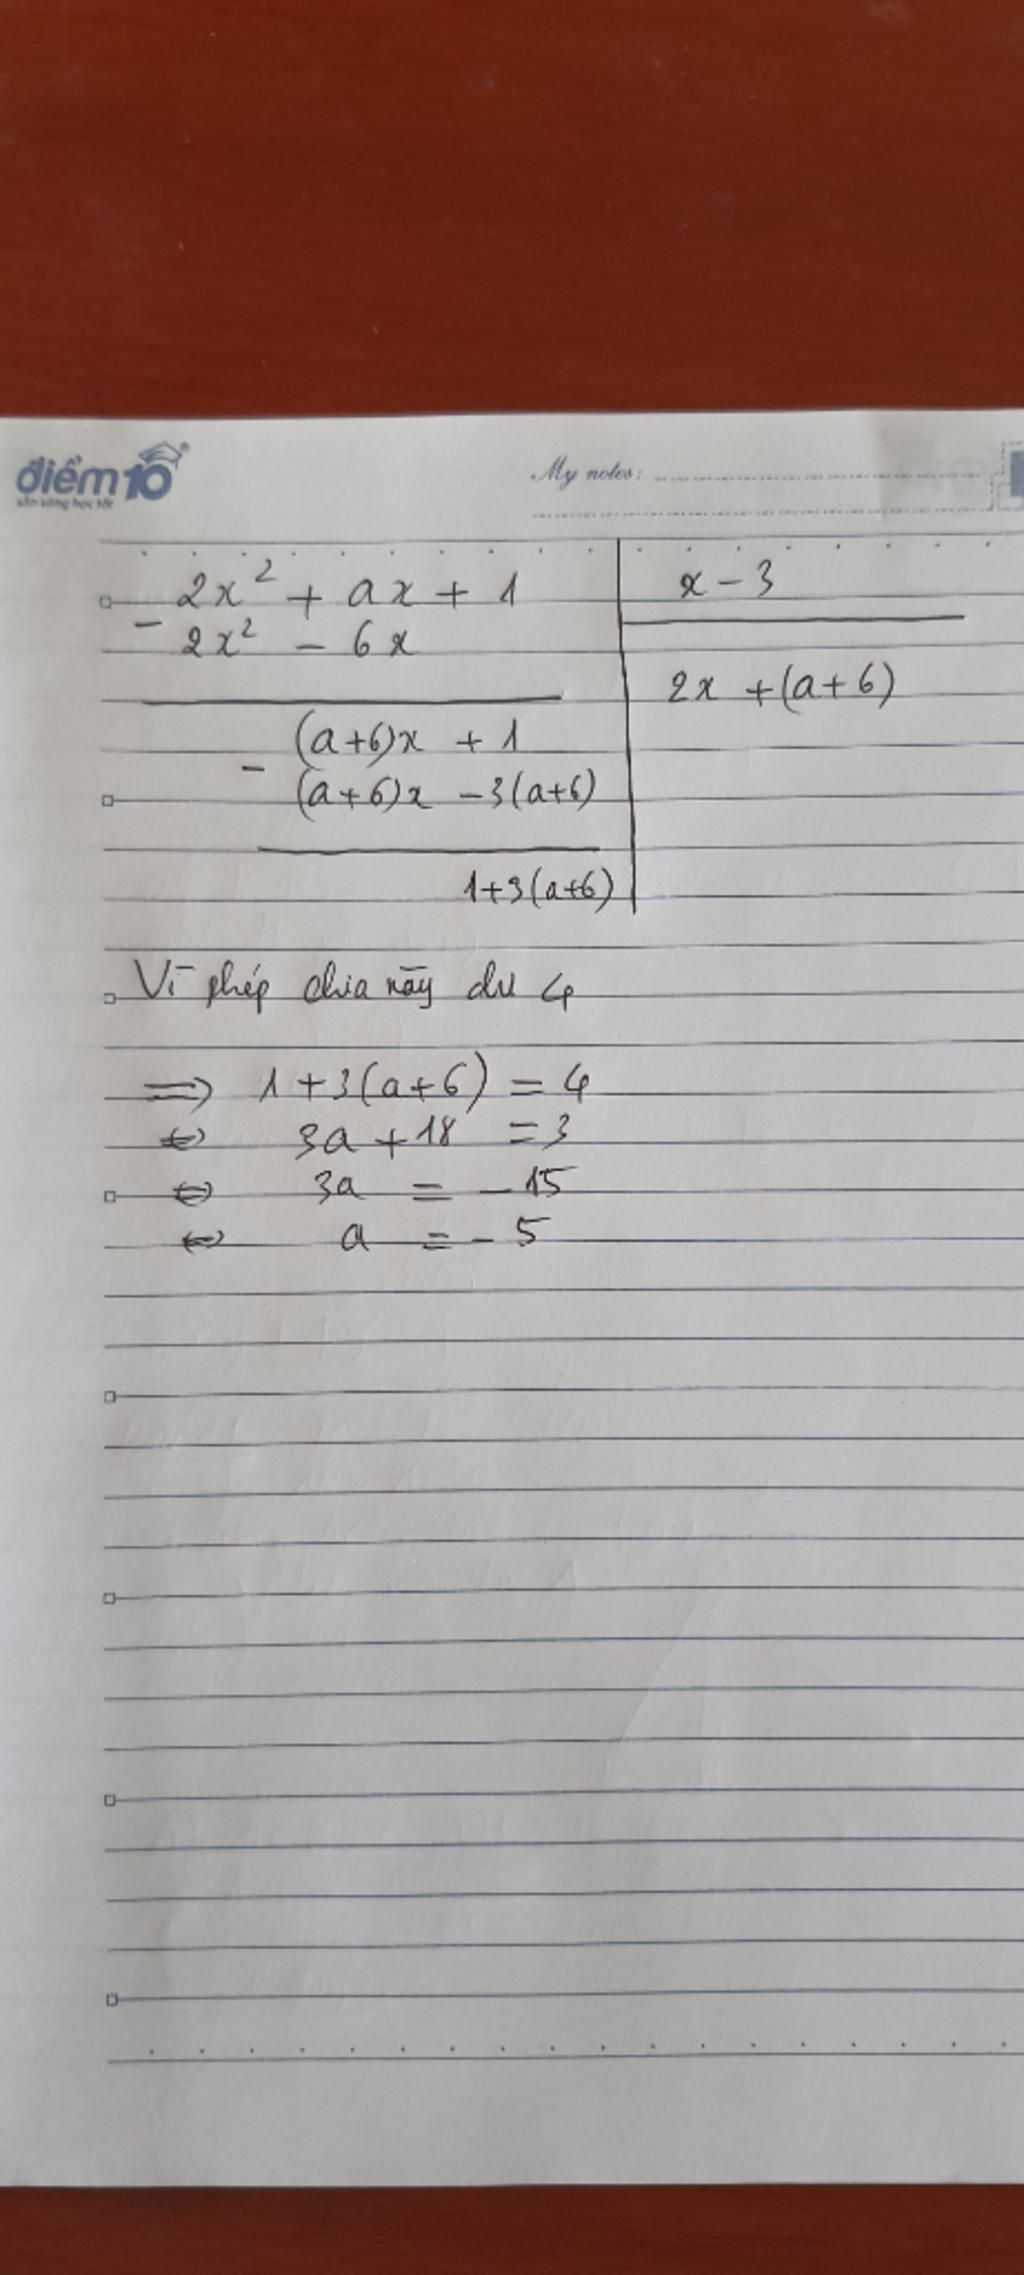 điểm10
sẵn sàng học tốt
My notes:
2x² + ax + 1
x - 3
- 2x² - 6x
2x + (a+6)
(a+6)x + 1
- (a+6)x - 3(a+6)
1+3(a+6)
Vì phép chia này dư 4
=> 1+3(a+6) = 4
<=> 3a + 18 = 3
<=> 3a = -15
<=> a = -5